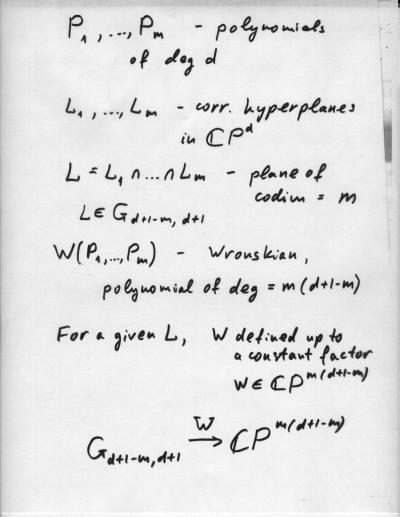 P₁, ..., Pₘ - polynomials
of deg d
L₁, ..., Lₘ - corr. hyperplanes
in ℂP^d
L = L₁ ∩ ... ∩ Lₘ - plane of
codim = m
L ∈ G_{d+1-m, d+1}
W(P₁, ..., Pₘ) - Wronskian,
polynomial of deg = m(d+1-m)
For a given L, W defined up to
a constant factor
W ∈ ℂP^{m(d+1-m)}
G_{d+1-m, d+1} \xrightarrow{W} ℂP^{m(d+1-m)}